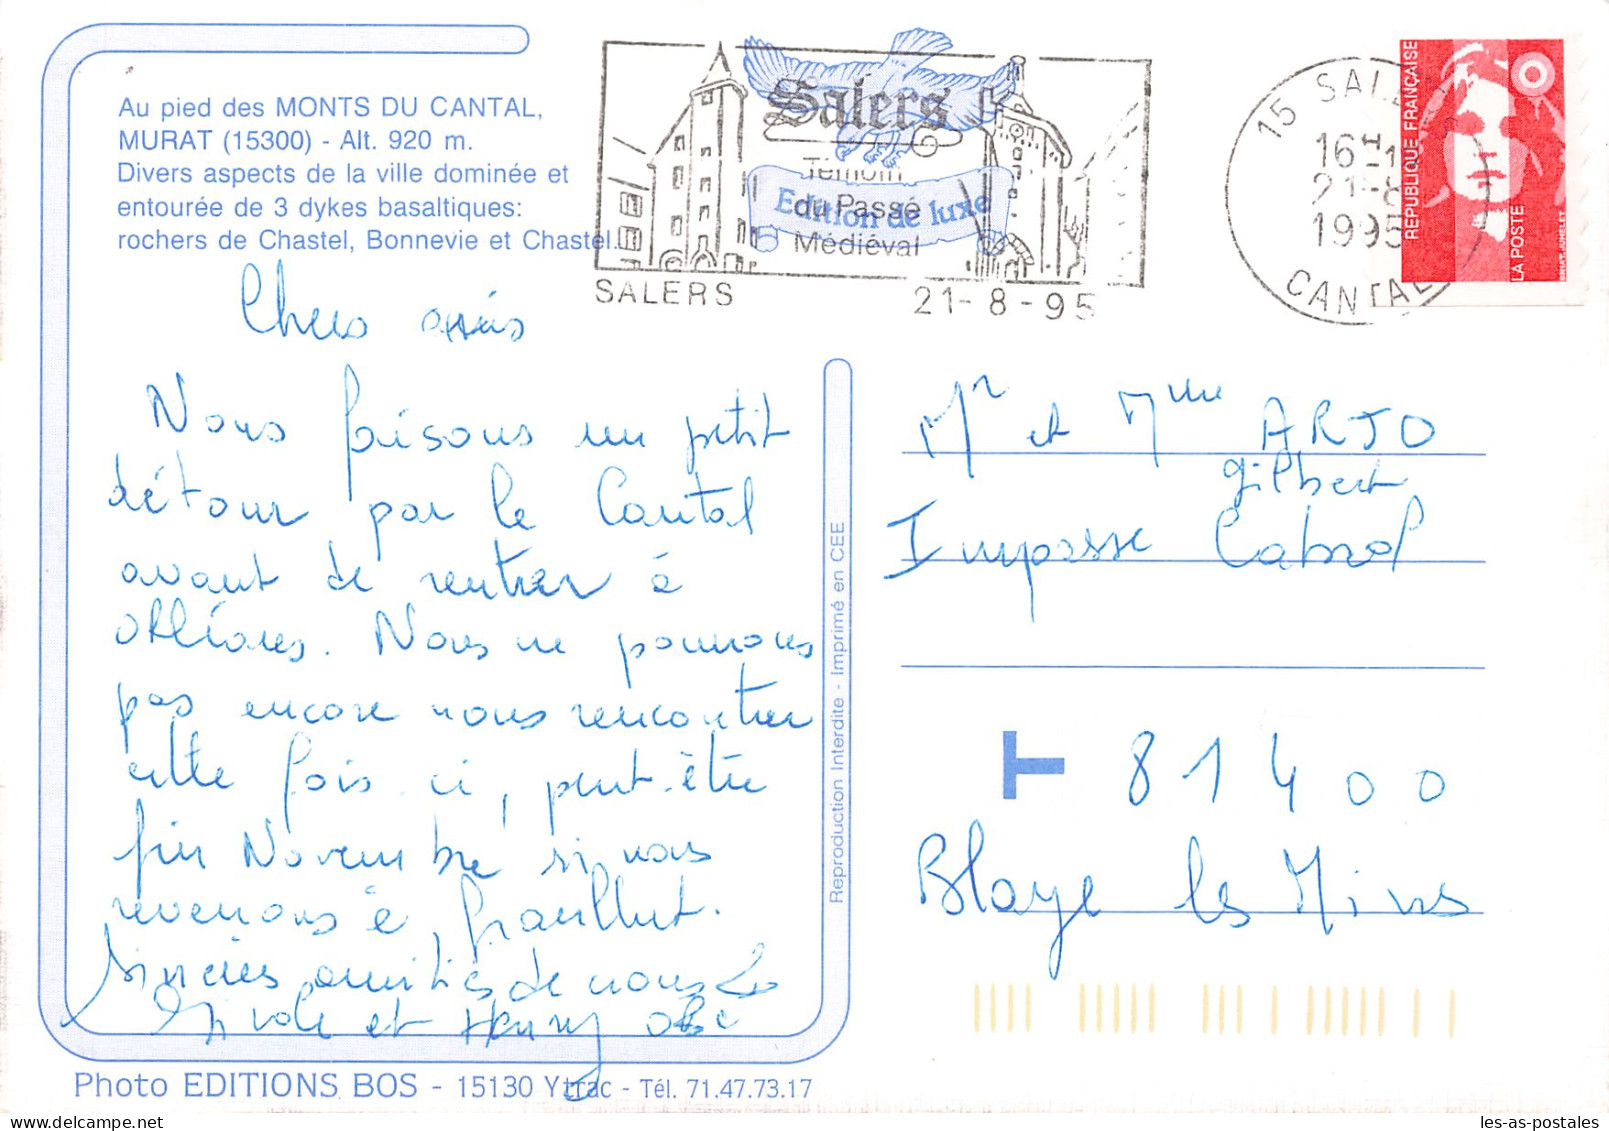 Au pied des MONTS DU CANTAL,
MURAT (15300) - Alt. 920 m.
Divers aspects de la ville dominée et
entourée de 3 dykes basaltiques:
rochers de Chastel, Bonnevie et Chastel.
Salers
Témoin
du Passé
Médiéval
Edition de luxe
SALERS
21-8-95
15 SALERS
16H
21-8
1995
CANTAL
REPUBLIQUE FRANÇAISE
LA POSTE
Chers amis
Nous faisons un petit
détour par le Cantal
avant de rentrer à
Orléans. Nous ne pourrons
pas encore nous rencontrer
cette fois ci, peut-être
fin Novembre si nous
revenons à Graulhet.
Sincères amitiés de nous 2
Nicole et Henry
Reproduction Interdite - Imprimé en CEE
Mr et Mme ARJO
gilbert
Impasse Cabrol
T 81400
Blaye les Mines
Photo EDITIONS BOS - 15130 Ytrac - Tél. 71.47.73.17
les-as-postales